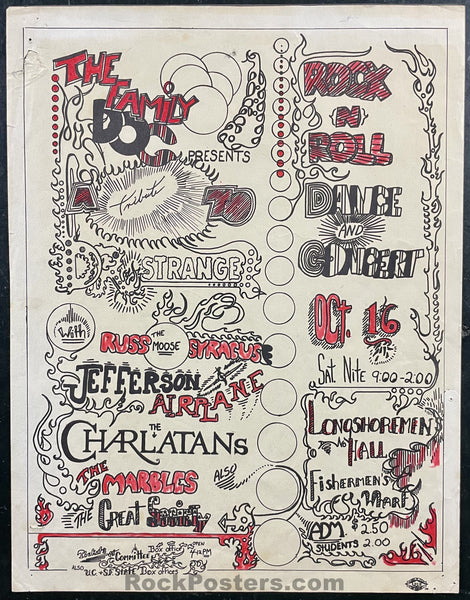 THE
FAMILY
DOG
PRESENTS
A Tribute TO
DR. STRANGE
With
RUSS THE MOOSE SYRACUSE
JEFFERSON
AIRPLANE
THE
CHARLATANS
THE
MARBLES
ALSO
THE Great Society
Committee Box office OPEN 4-12 PM
ALSO U.C. + S.F. STATE Box offices
ROCK
N
ROLL
DANCE
AND
CONCERT
OCT. 16
Sat. Nite 9:00-2:00
LONGSHOREMEN
HALL
FISHERMEN'S
WHARF
ADM. $2.50
STUDENTS 2.00
RockPosters.com